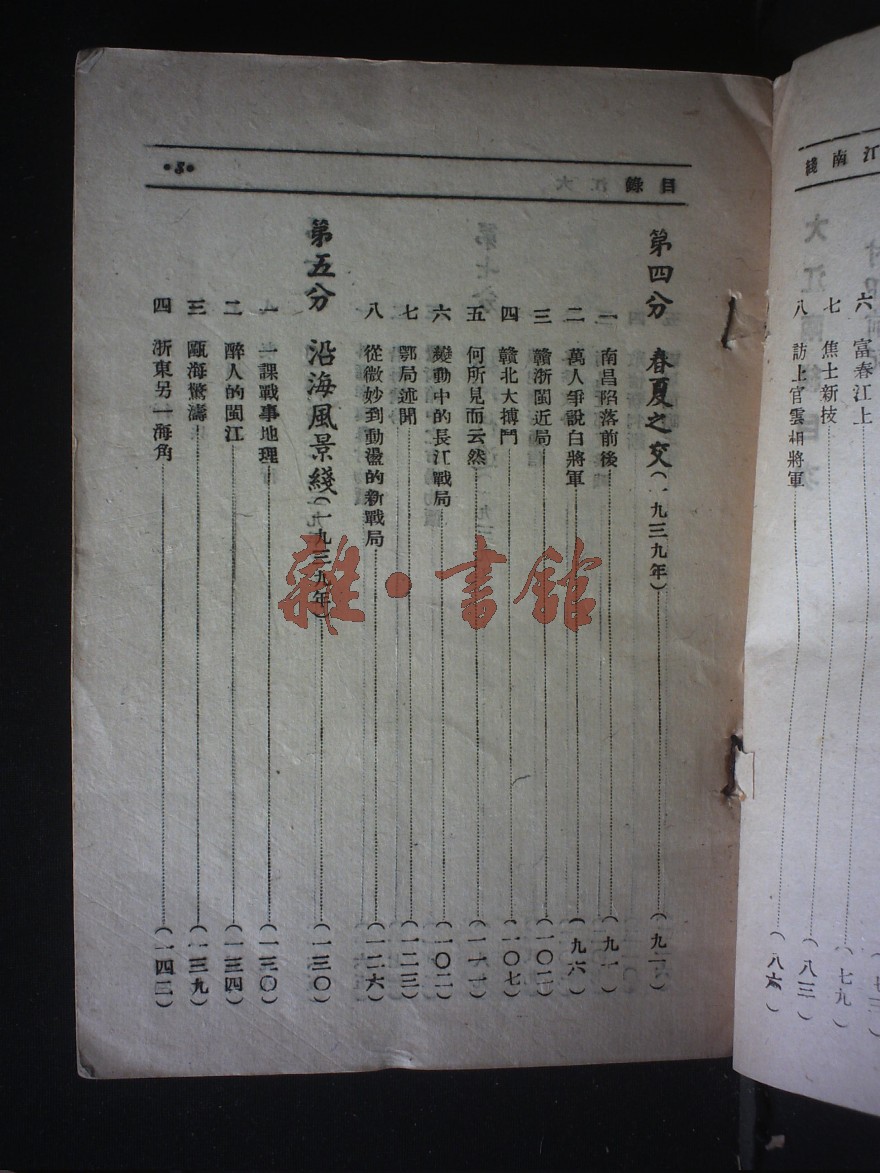 江南綫
六 富春江上
七 焦土新技 (七九)
八 訪上官雲相將軍 (八三)
(八六)
目錄
•3•
第四分 春夏之交(一九三九年) (九一)
一 南昌陷落前後 (九一)
二 萬人爭說白將軍 (九六)
三 贛浙閩近局 (一〇二)
四 贛北大搏鬥 (一〇七)
五 何所見而云然 (一一一)
六 變動中的長江戰局 (一〇二)
七 鄂局述聞 (一二三)
八 從微妙到動盪的新戰局 (一二六)
第五分 沿海風景綫(一九三九年) (一三〇)
一 一課戰事地理 (一三〇)
二 醉人的閩江 (一三四)
三 甌海驚濤 (一三九)
四 浙東另一海角 (一四二)
雜·書館